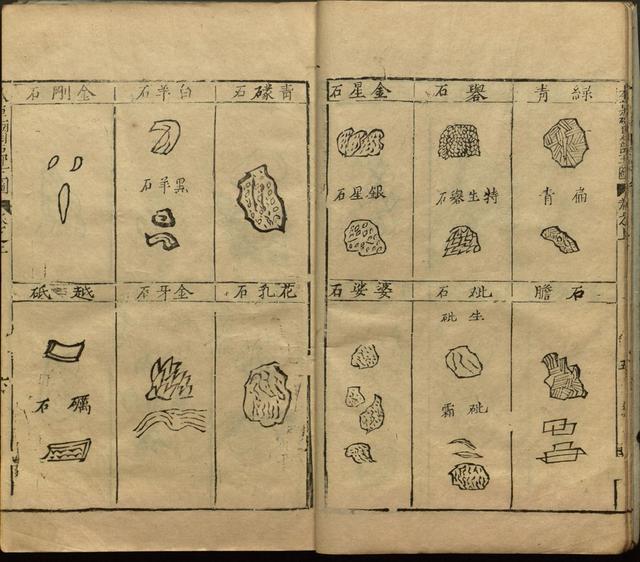 綠青
扁青
石膽
礜石
特生礜石
砒石
生砒
砒霜
金星石
銀星石
婆娑石
青礞石
花乳石
白羊石
黑羊石
金牙石
金剛石
越砥
礪石